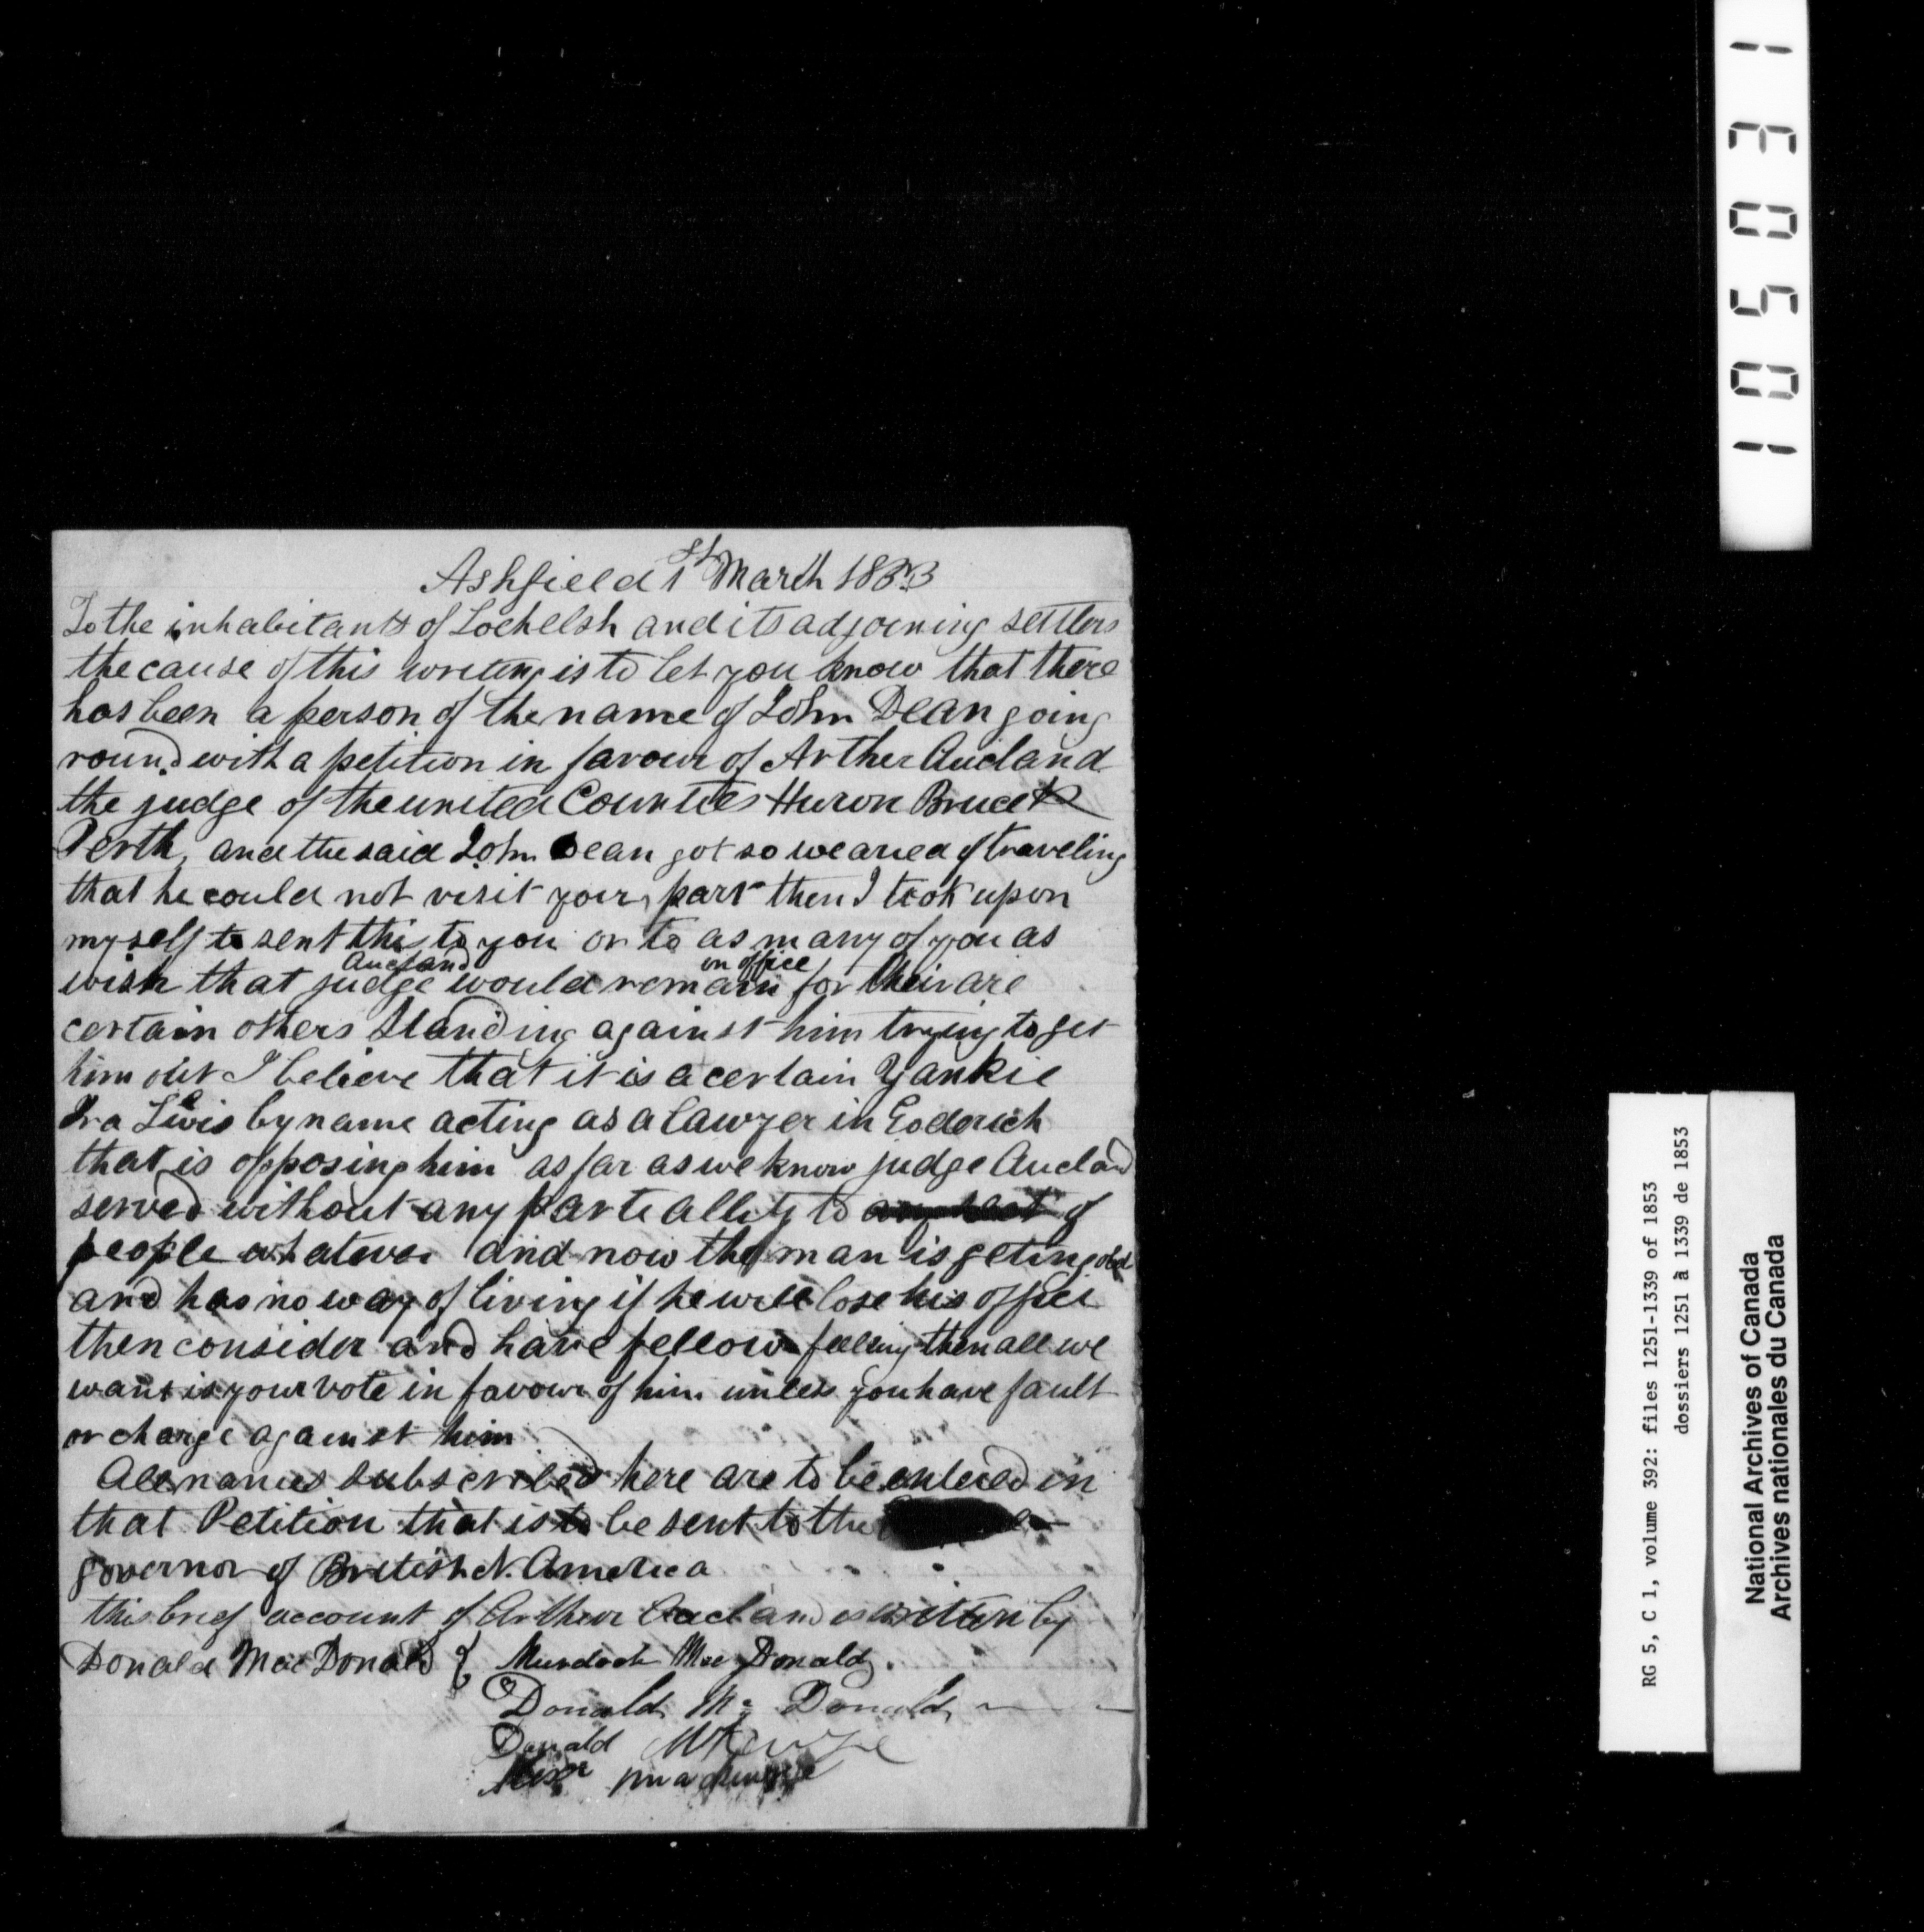 Ashfield 1st March 1853
To the inhabitants of Lochelsh and its adjoining settlers
the cause of this writing is to let you know that there
has been a person of the name of John Dean going
round with a petition in favour of Arther Aucland
the judge of the united Counties Huron Bruce &
Perth, and the said John Dean got so wearied of traveling
that he could not visit your part then I took upon
myself to sent this to you or to as many of you as
wish that judge Aucland would remain in office for their are
certain others standing against him trying to get
him out I believe that it is a certain Yankie
Ira Lewis by name acting as a lawyer in Goderich
that is opposing him as far as we know judge Aucland
served without any parteallity to of
people whatever and now the man is geting old
and has no way of living if he will lose his office
then consider and have fellow feeling then all we
want is your vote in favour of him unless you have fault
or charge against him
All names subscribed here are to be entered in
that Petition that is to be sent to the
governor of British N. America
this brief account of Arthur Aucland is written by
Donald MacDonald { Murdoch Mac Donald
Donald Mc Donald
Donald McKenzie
Alexr
10503 1
RG 5, C 1, volume 392: files 1251-1339 of 1853
dossiers 1251 à 1339 de 1853
National Archives of Canada
Archives nationales du Canada